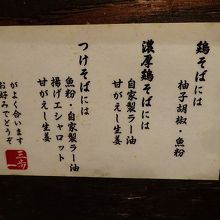 鶏そばには
柚子胡椒・魚粉
濃厚鶏そばには
自家製ラー油
甘がえし生姜
つけそばには
魚粉・自家製ラー油
揚げエシャロット
甘がえし生姜
がよく合います
お好みでどうぞ